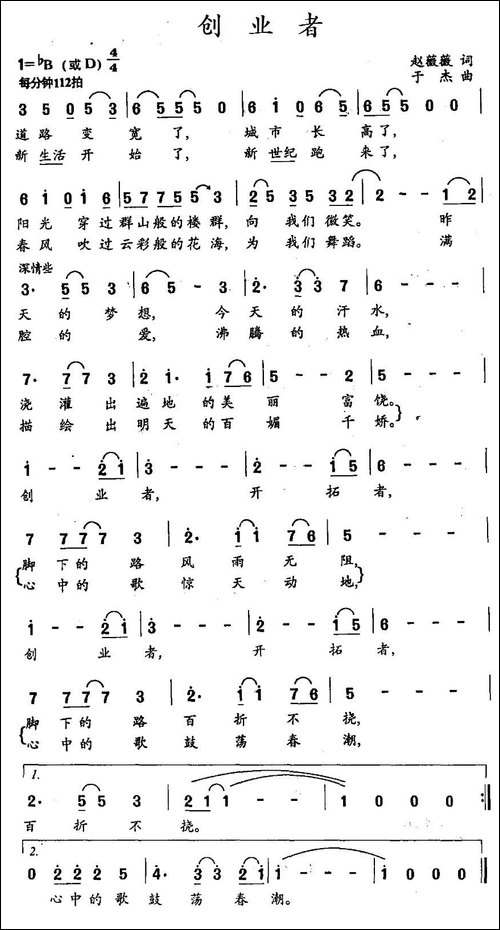 创业者
1=♭B（或D）4/4
每分钟112拍
赵薇薇 词
于 杰 曲
3 5 0 5 3 | 6 5 5 5 0 | 6 i 0 6 3 | 6 5 5 0 0 |
道路 变 宽 了， 城市 长 高了，
新生活开 始 了， 新世纪跑 来了，
6 i 0 i 6 | 5 7 7 5 5 3 | 2 5 3 5 3 2 | 2 - - 1 2 |
阳光 穿过群山般的楼群，向 我们微笑。 昨
春风 吹过云彩般的花海，为 我们舞蹈。 满
深情些
3· 5 5 3 | 6 5 - 3 | 2· 3 3 7 | 6 - - - |
天 的 梦 想， 今 天 的 汗 水，
腔 的 爱， 沸 腾 的 热 血，
7· 7 7 3 | 2 i· i 7 6 | 5 - - 2 | 5 - - - |
浇 灌 出 遍 地 的 美 丽 富 饶。
描 绘 出 明 天 的 百 媚 千 娇。
i - - 2 i | 3 - - - | 2 - - i 5 | 6 - - - |
创 业 者， 开 拓 者，
7 7 7 7 3 | 2· i i 7 6 | 5 - - - |
脚 下 的 路 风 雨 无 阻，
心 中 的 歌 惊 天 动 地，
i - - 2 i | 3 - - - | 2 - - i 5 | 6 - - - |
创 业 者， 开 拓 者，
7 7 7 7 3 | 2· i i 7 6 | 5 - - - |
脚 下 的 路 百 折 不 挠，
心 中 的 歌 鼓 荡 春 潮，
1.
2· 5 5 3 | 2 1 1 - - | 1 0 0 0 :|
百 折 不 挠。
2.
0 2 2 2 5 | 4· 3 3 2 i | i - - - | i 0 0 0 |
心中的歌 鼓 荡 春 潮。